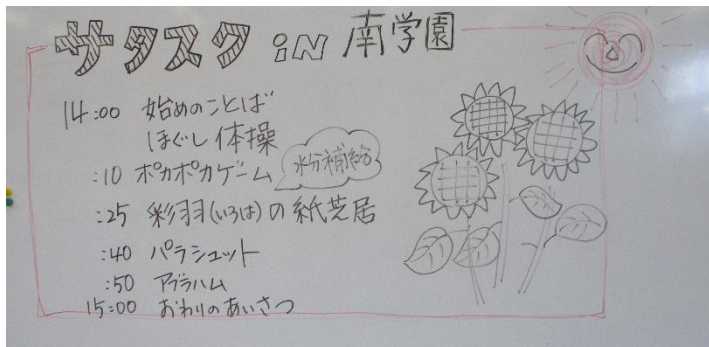 サタスク iN 南学園
14:00 始めのことば
ほぐし体操
:10 ポカポカゲーム
水分補給
:25 彩羽(いろは)の紙芝居
:40 パラシュット
:50 アブラハム
15:00 おわりのあいさつ